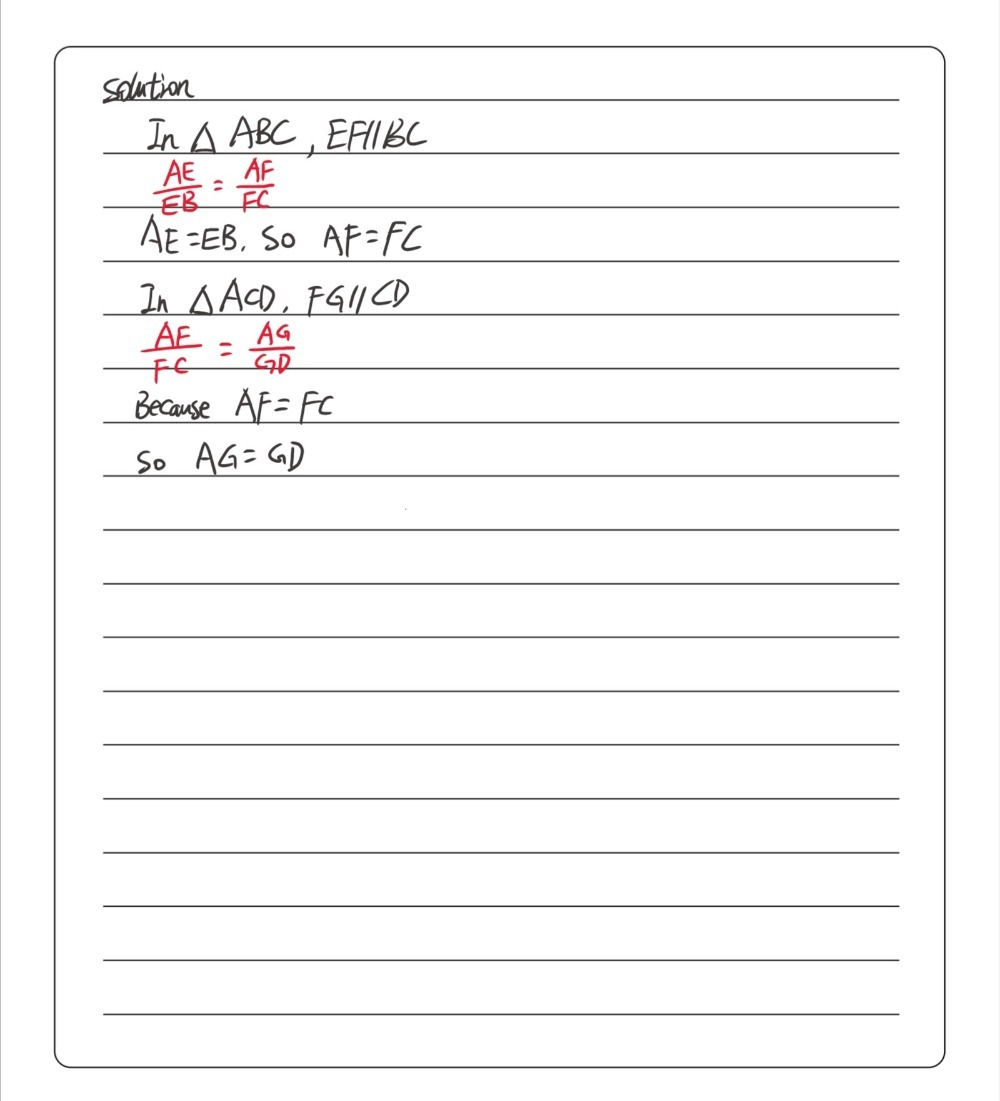 Solution
In △ ABC, EF//BC
AE/EB = AF/FC
AE=EB, So AF=FC
In △ACD, FG//CD
AF/FC = AG/GD
Because AF=FC
So AG=GD